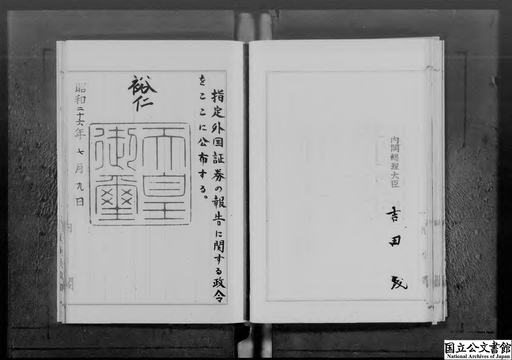 指定外国証券の報告に関する政令
をここに公布する。
裕仁
天皇
御璽
昭和二十六年七月九日
内閣総理大臣
吉田茂
国立公文書館
National Archives of Japan